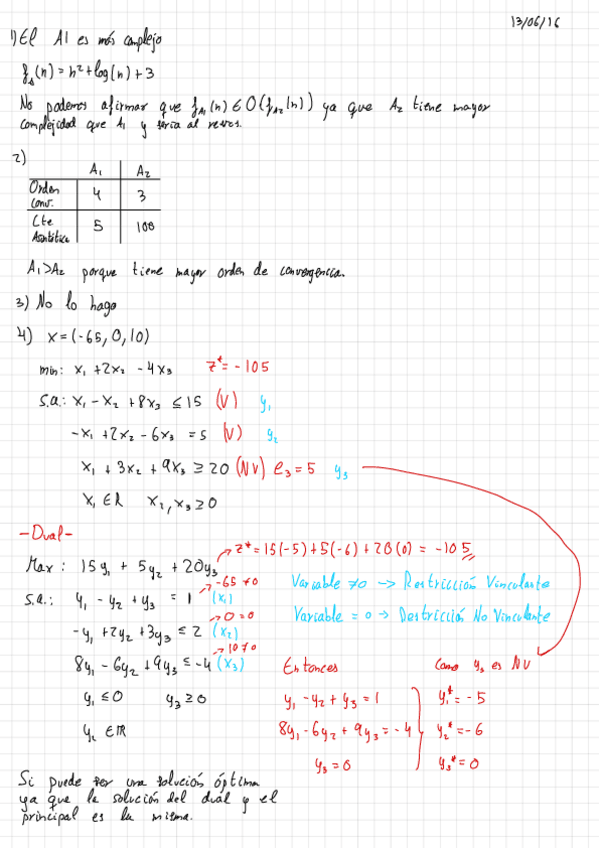 13/06/16
1) El A1 es más complejo
f_A(n) = n² + log(n) + 3
No podemos afirmar que f_A1(n) ∈ O(f_A2(n)) ya que A2 tiene mayor
complejidad que A1 y sería al revés.
2)
A1 A2
Orden Conv. 4 3
Cte Asintótica 5 100
A1 > A2 porque tiene mayor orden de convergencia.
3) No lo hago
4) x = (-65, 0, 10)
min: x1 + 2x2 - 4x3 z* = -105
s.a.: x1 - x2 + 8x3 ≤ 15 (V) y1
-x1 + 2x2 - 6x3 = 5 (V) y2
x1 + 3x2 + 9x3 ≥ 20 (NV) e3 = 5 y3
x1 ∈ R x2, x3 ≥ 0
-Dual-
Max: 15y1 + 5y2 + 20y3 → z* = 15(-5) + 5(-6) + 20(0) = -105
s.a.: y1 - y2 + y3 = 1 (x1) → -65 ≠ 0
-y1 + 2y2 + 3y3 ≤ 2 (x2) → 0 = 0
8y1 - 6y2 + 9y3 ≤ -4 (x3) → 10 ≠ 0
y1 ≤ 0 y3 ≥ 0
y2 ∈ R
Variable ≠ 0 -> Restricción Vinculante
Variable = 0 -> Restricción No Vinculante
Entonces
y1 - y2 + y3 = 1
8y1 - 6y2 + 9y3 = -4
y3 = 0
Como y3 es NV
y1* = -5
y2* = -6
y3* = 0
Si puede ser una solución óptima
ya que la solución del dual y el
principal es la misma.